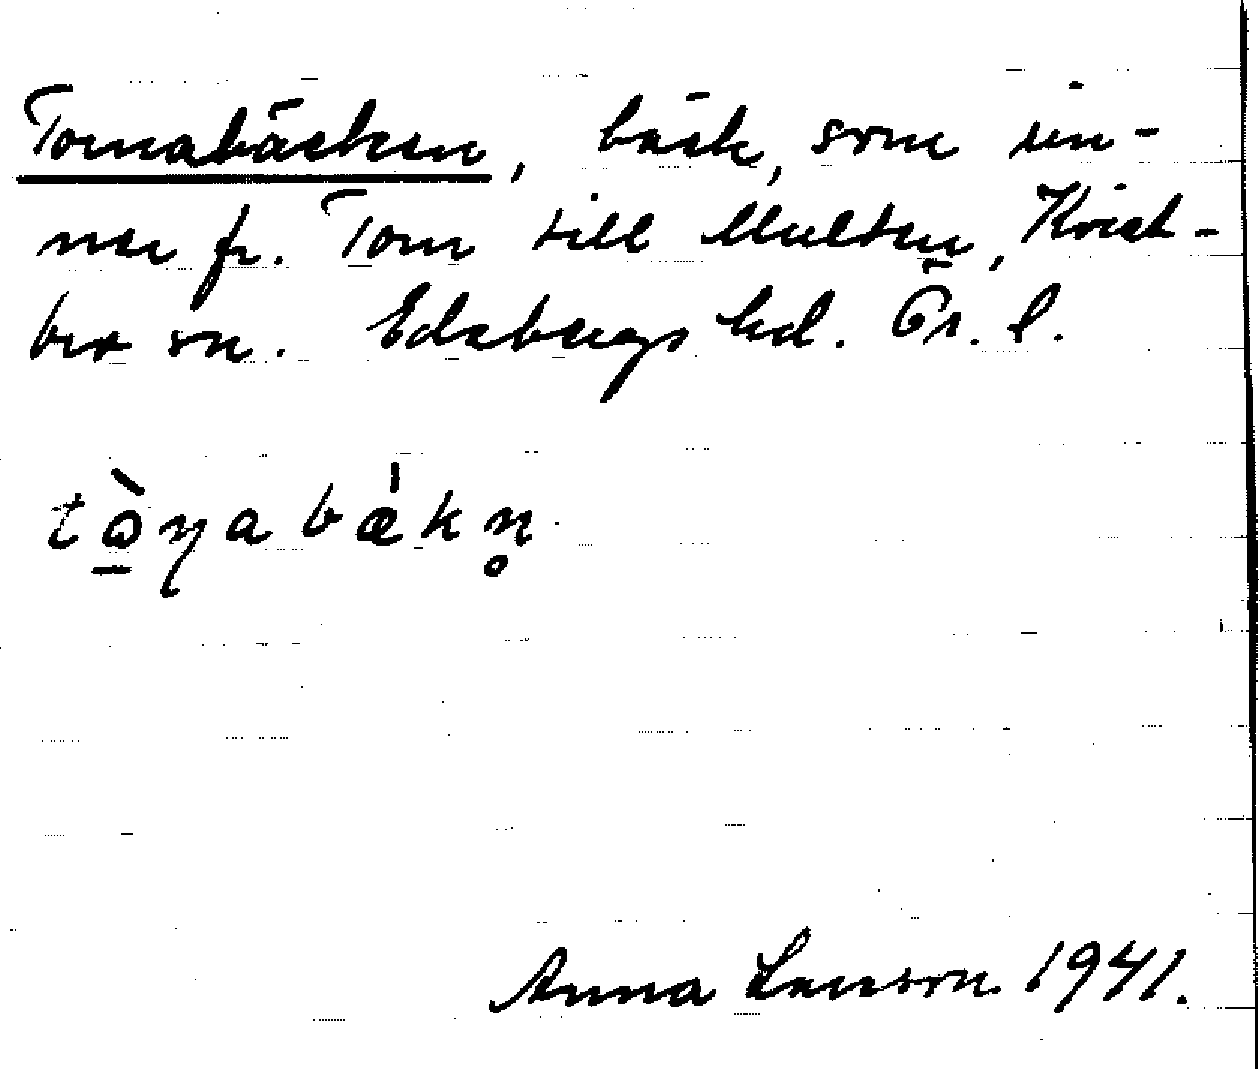 Tornabäcken, bäck, som rin-
ner fr. Torn till Multen, Kvist-
bro sn. Edsbergs hd. Ör. l.
tò̱ŋabǽkn̥
Anna Larsson 1941.